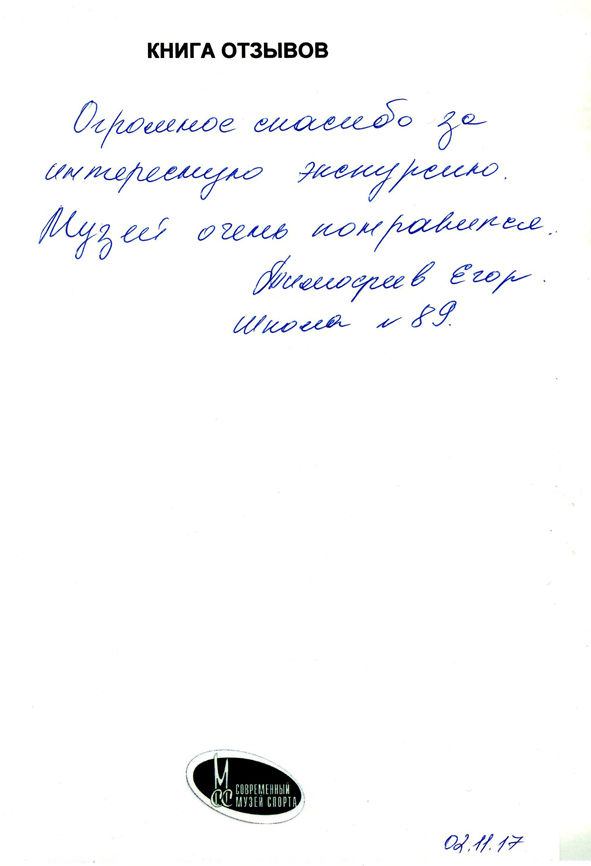 КНИГА ОТЗЫВОВ
Огромное спасибо за
интересную экскурсию.
Музей очень понравился.
Тимофеев Егор.
Школа № 89.
МСС
СОВРЕМЕННЫЙ
МУЗЕЙ СПОРТА
02.11.17